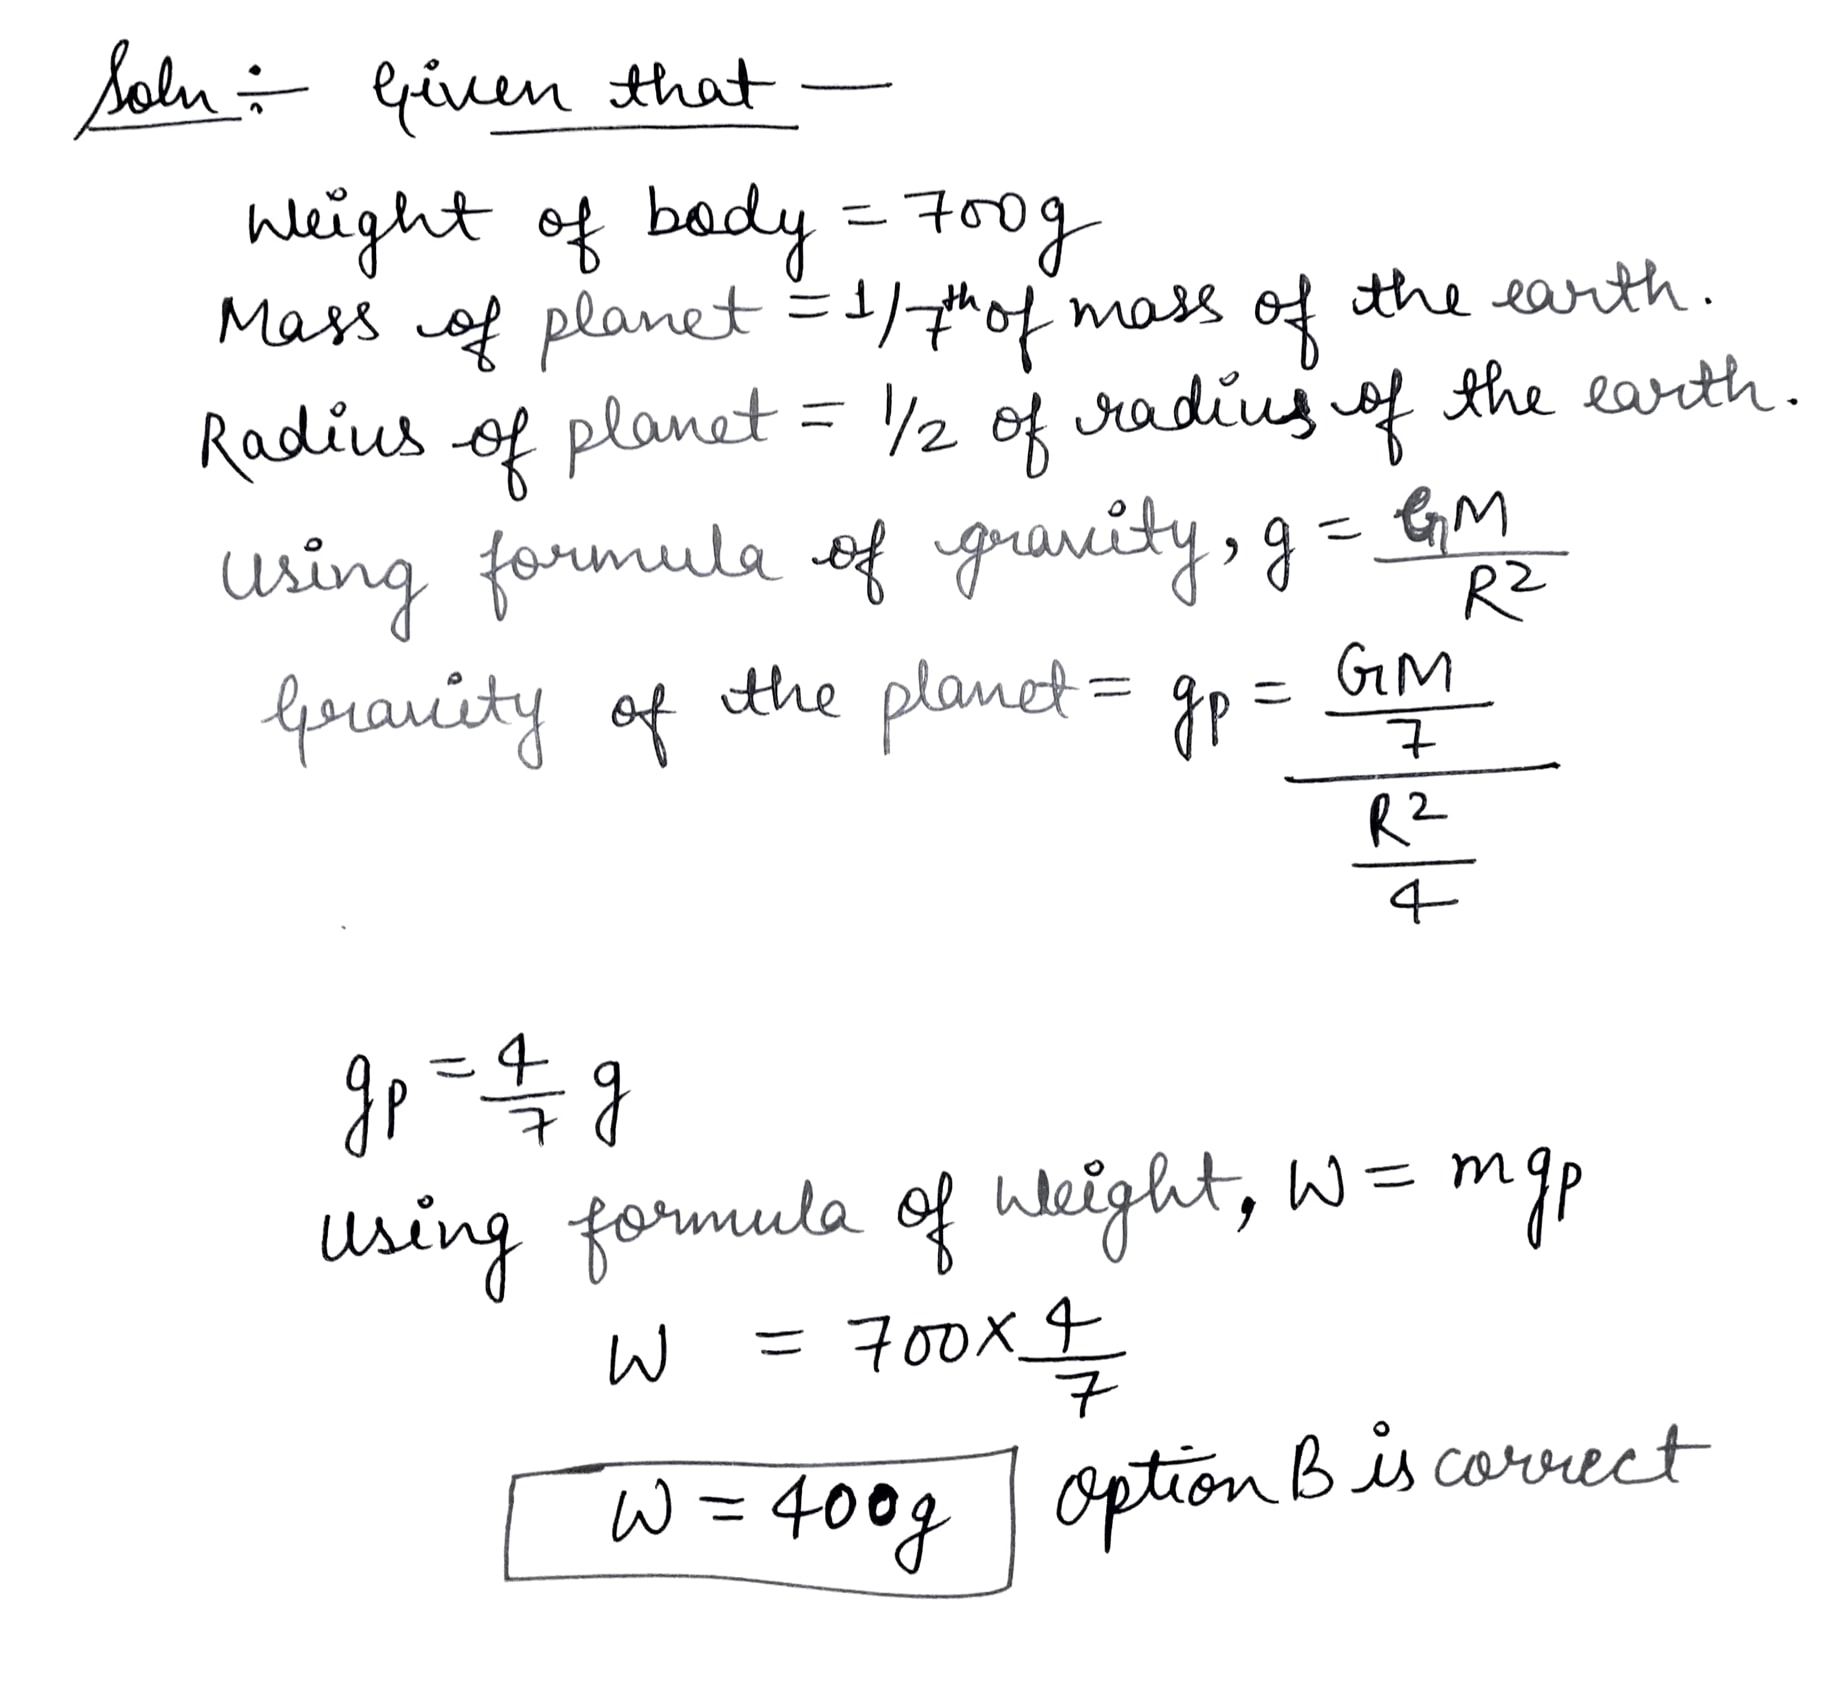 Soln :- Given that —
Weight of body = 700g
Mass of planet = 1/7th of mass of the earth.
Radius of planet = 1/2 of radius of the earth.
Using formula of gravity, g = GM/R²
Gravity of the planet = gp = (GM/7)/(R²/4)
gp = 4/7 g
Using formula of weight, W = mgp
W = 700 × 4/7
W = 400g option B is correct